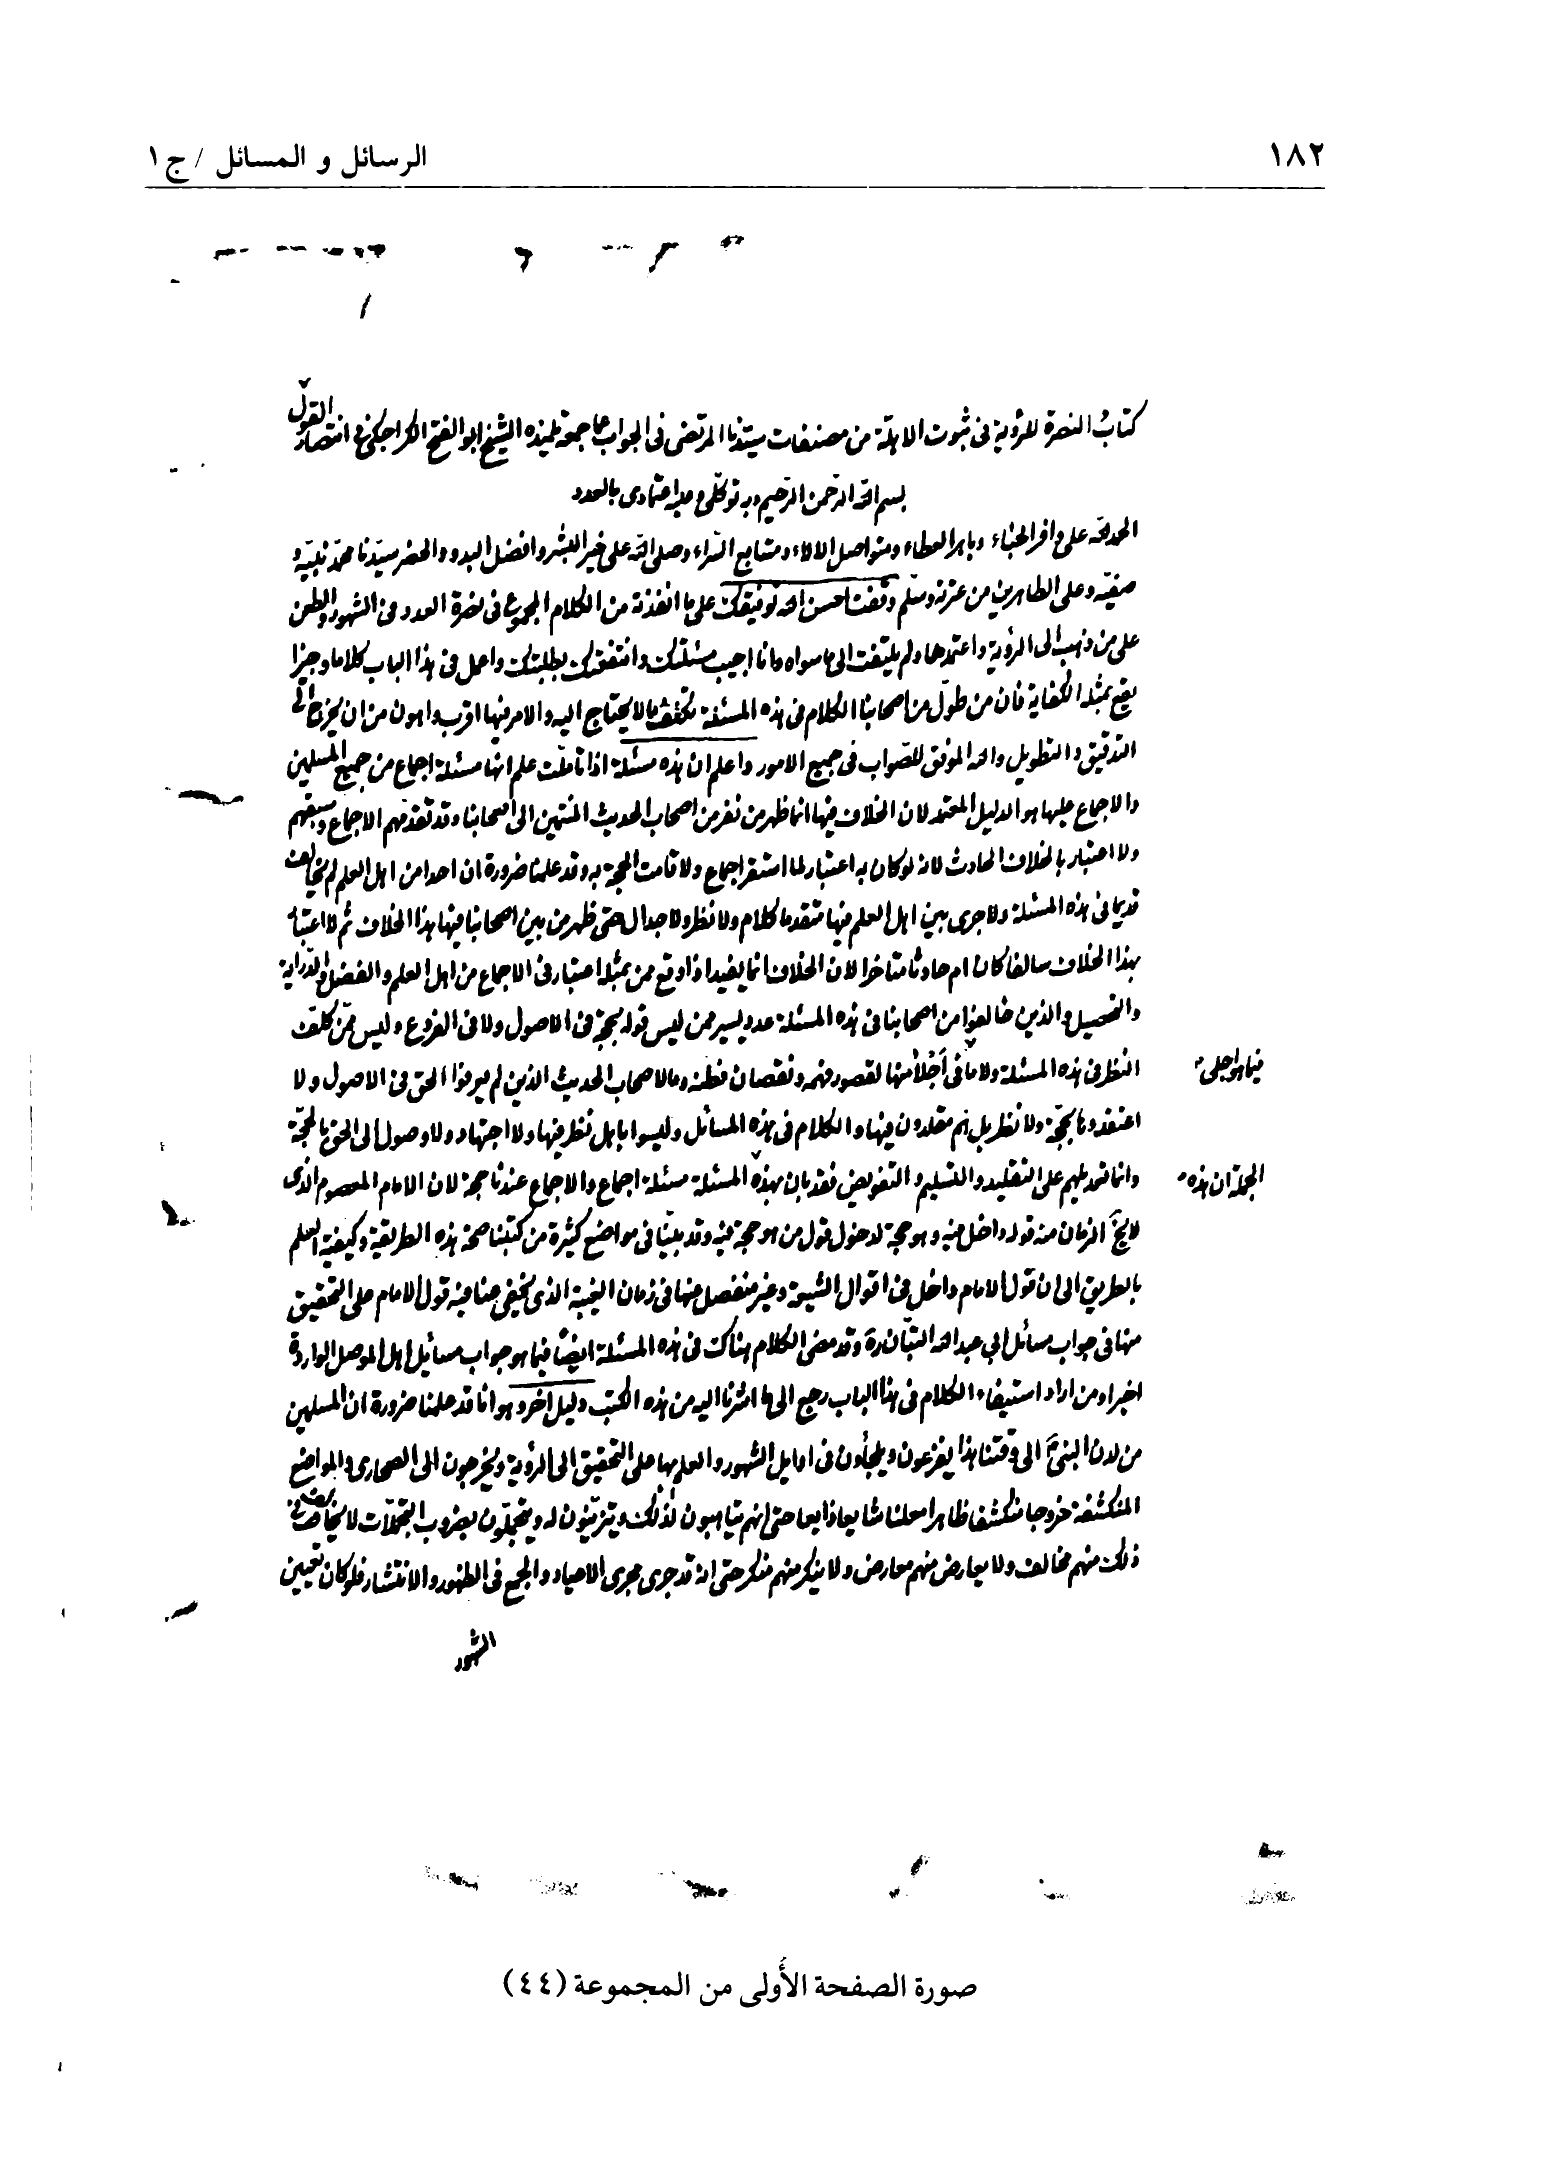 ١٨٢
الرسائل و المسائل / ج ١
كتاب النصرة للرؤية فى ثبوت الاهلّة من مصنفات سيّدنا المرتضى فى الجواب عما جمعه تلميذه الشيخ ابو الفتح الكراجكى فى انتصار القول
بسم الله الرّحمن الرّحيم وبه توكّلى وعليه اعتمادى بالعدد
الحمدلله على وافر الحباء وباهر العطاء ومتواصل الالاء ومتتابع السّراء وصلى الله على خير البشر وافضل البدو والحضر سيّدنا محمّد نبيّه و
صفيّه وعلى الطاهرين من عترته وسلّم وقفت احسن الله توفيقك على ما انفذته من الكلام المجموع فى نصرة العدد فى الشهور والطعن
على من ذهب الى الرؤية واعتمدها ولم يلتفت الى ما سواه وانا اجيب مسئلتك وانتفعتك بطلبتك واعمل فى هذا الباب كلاما وجيزا
يقع بمثله الكفاية فان من طوّل من اصحابنا الكلام فى هذه المسئلة تكلّف ما لا يحتاج اليه والامر فيها اقرب واهون من ان يخرج الى
التدقيق والتطويل والله الموفق للصّواب فى جميع الامور واعلم ان هذه مسئلة اذا تاملّت علم انها مسئلة اجماع من جميع المسلمين
والاجماع عليها هو الدليل المعتمد لان الخلاف فيها انما ظهر من نفر من اصحاب الحديث المنتمين الى اصحابنا وقد تقدّمهم الاجماع وسبقهم
ولا اعتبار بالخلاف الحادث لانه لو كان به اعتبار لما استقر اجماع ولا قامت الحجة به وقد علمنا ضرورة ان احدا من اهل العلم لم يخالف
قديما فى هذه المسئلة ولا جرى بين اهل العلم فيها متقدما كلام ولا نظر ولا جدال حتى ظهر من بين اصحابنا فيها هذا الخلاف ثم لا اعتبار
بهذا الخلاف سالفا كان ام حادثا متاخرا لان الخلاف انما يفيد اذا وقع ممن بمثله اعتبار فى الاجماع من اهل العلم والفضل والدّراية
والتحصيل والذين خالفوا من اصحابنا فى هذه المسئلة عدد يسير ممن ليس قوله بحجة فى الاصول ولا فى الفروع وليس ممّن كلّف
النظر فى هذه المسئلة ولا ما فى اجلا منها لقصور فهمه ونقصان فطنه وما لاصحاب الحديث الذين لم يعرفوا الحق فى الاصول ولا
فيما هو اجلى
اعتقدوها بحجّة ولا نظر بل هم مقلدون فيها والكلام فى هذه المسائل وليسوا باهل نظر فيها ولا اجتهاد ولا وصول الى الحق بالحجّة
وانما تعويلهم على التقليد والتسليم والتفويض فقد بان بهذه المسئلة مسئلة اجماع والاجماع عندنا حجة لان الامام المعصوم الذى
الجملة ان هذه
لا يخ الزمان منه قوله داخل فيه وهو حجة لدخول قول من هو حجة فيه وقد بيّنا فى مواضع كثيرة من كتبنا صحة هذه الطريقة وكيفية العلم
بالطريق الى ان قول الامام داخل فى اقوال الشيعة وغير منفصل منها فى زمان الغيبة الذى يخفى عنا فيه قول الامام على التحقيق
منها فى جواب مسائل ابي عبد الله التبّان ره وقد مضى الكلام هناك فى هذه المسئلة ايضًا فيما هو جواب مسائل اهل الموصل الواردة
اخيرا ومن اراد استيفاء الكلام فى هذا الباب رجع الى ما اشرنا اليه من هذه الكتب دليل اخر وهو انا قد علمنا ضرورة ان المسلمين
من لدن النبى ص الى وقتنا هذا يفزعون ويلجأون فى اوايل الشهور والعلم بها على التحقيق الى الرؤية ويخرجون الى الصحارى والمواضع
المنكشفة خروجا منكشفا ظاهرا معلنا شايعا ذايعا حتى انهم يتاهبون لذلك ويتزيّنون له ويتجمّلون بضروب التجمّلات لا يخالف فى
ذلك منهم مخالف ولا يعارض منهم معارض ولا ينكر منهم منكر حتى انه قد جرى مجرى الاعياد والجمع فى الظهور والانتشار فلو كان تعيين
الشهور
صورة الصفحة الأُولى من المجموعة (٤٤)